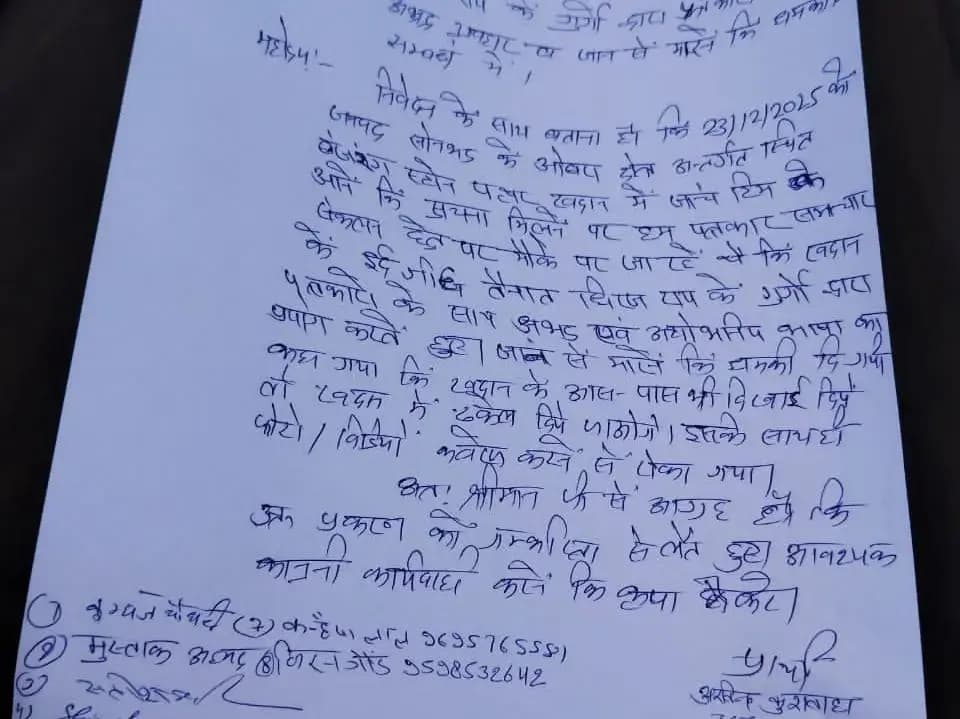 के गुर्गो द्वारा
अभद्र व्यवहार व जान से मारने कि धमकी
सम्बंध में।
महोदय:-
निवेदन के साथ बताना है कि 23/12/2025 को
जनपद सोनभद्र के ओबरा क्षेत्र अन्तर्गत स्थित
बजरंग स्टोन पत्थर खदान में जांच टिम के
आने कि सूचना मिलने पर हम पत्रकार समाचार
संकलन हेतु पर मौके पर जा रहे थे कि खदान
के इर्द गीर्ध तैनात के गुर्गो द्वारा
पत्रकारो के साथ अभद्र एवं अशोभनिय भाषा का
प्रयोग करते हुए। जान से मारने कि धमकी दि गयी
कहा गया कि खदान के आस-पास भी दिखाई दिये
तो खदान में ढकेल दिये जाओगे। इसके साथ ही
फोटो/विडियो कवरेज करने से रोका गया।
अत: श्रीमान जी से आग्रह है कि
उक्त प्रकरण को गम्भीरता से लेते हुए आवश्यक
कानूनी कार्यवाही करने कि कृपा करे।
1) चौधरी (7) कन्हैया लाल
2) मुस्ताक अहमद (8) गौंड 9598532642
3)
4)
प्रार्थी
कुशवाहा